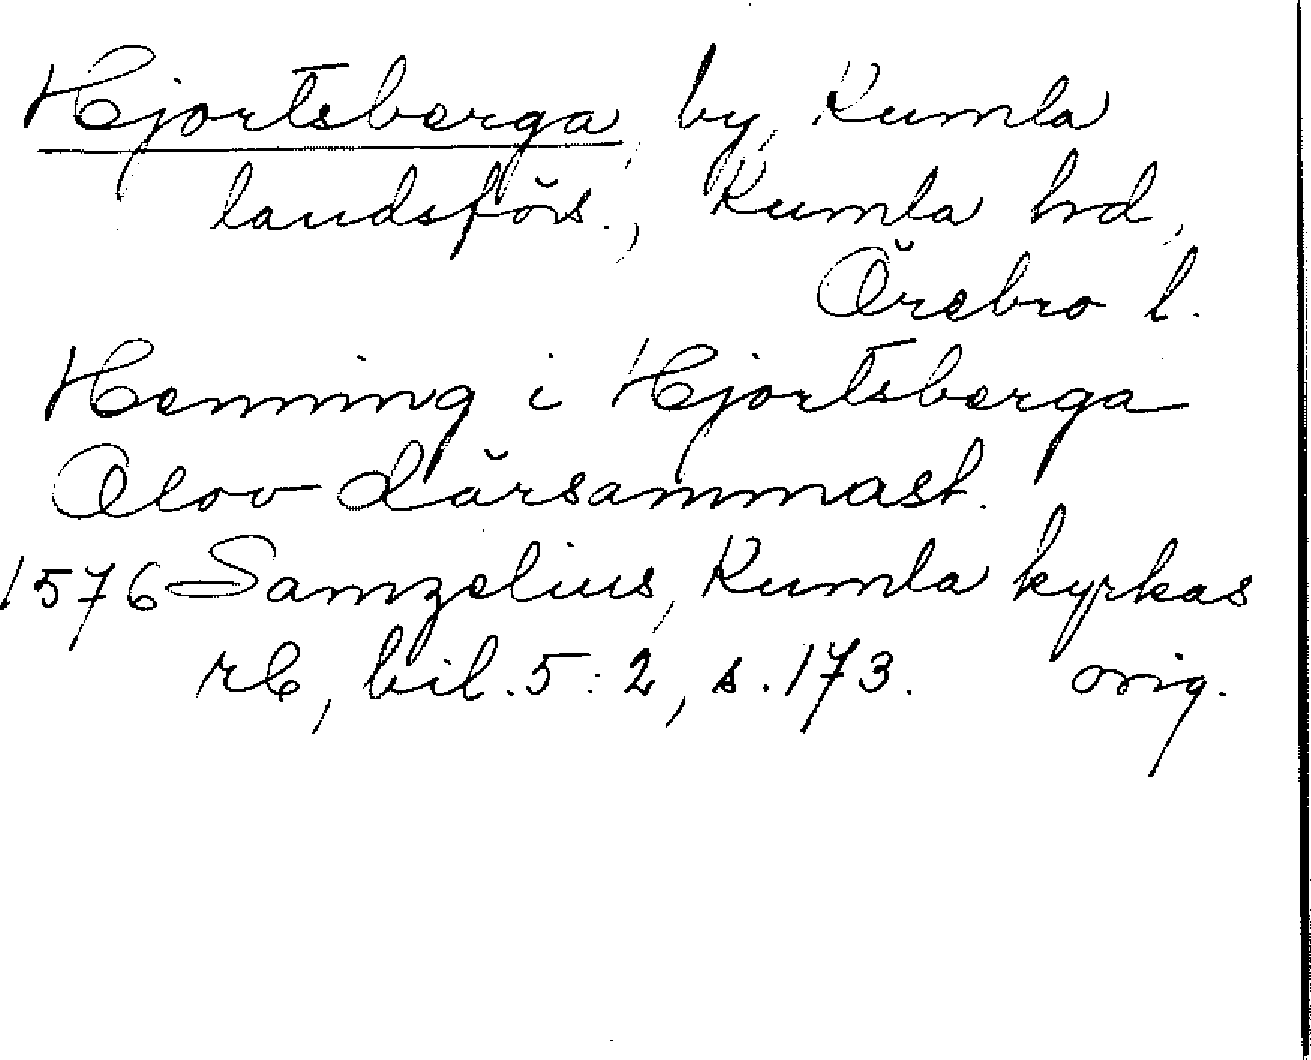 Hjortsberga, by, Kumla
landsförs., Kumla hd,
Örebro l.
Henning i Hjortsberga
Olov därsammast.
1576 Samzelius, Kumla kyrkas
rb, bil. 5:2, s. 173. orig.